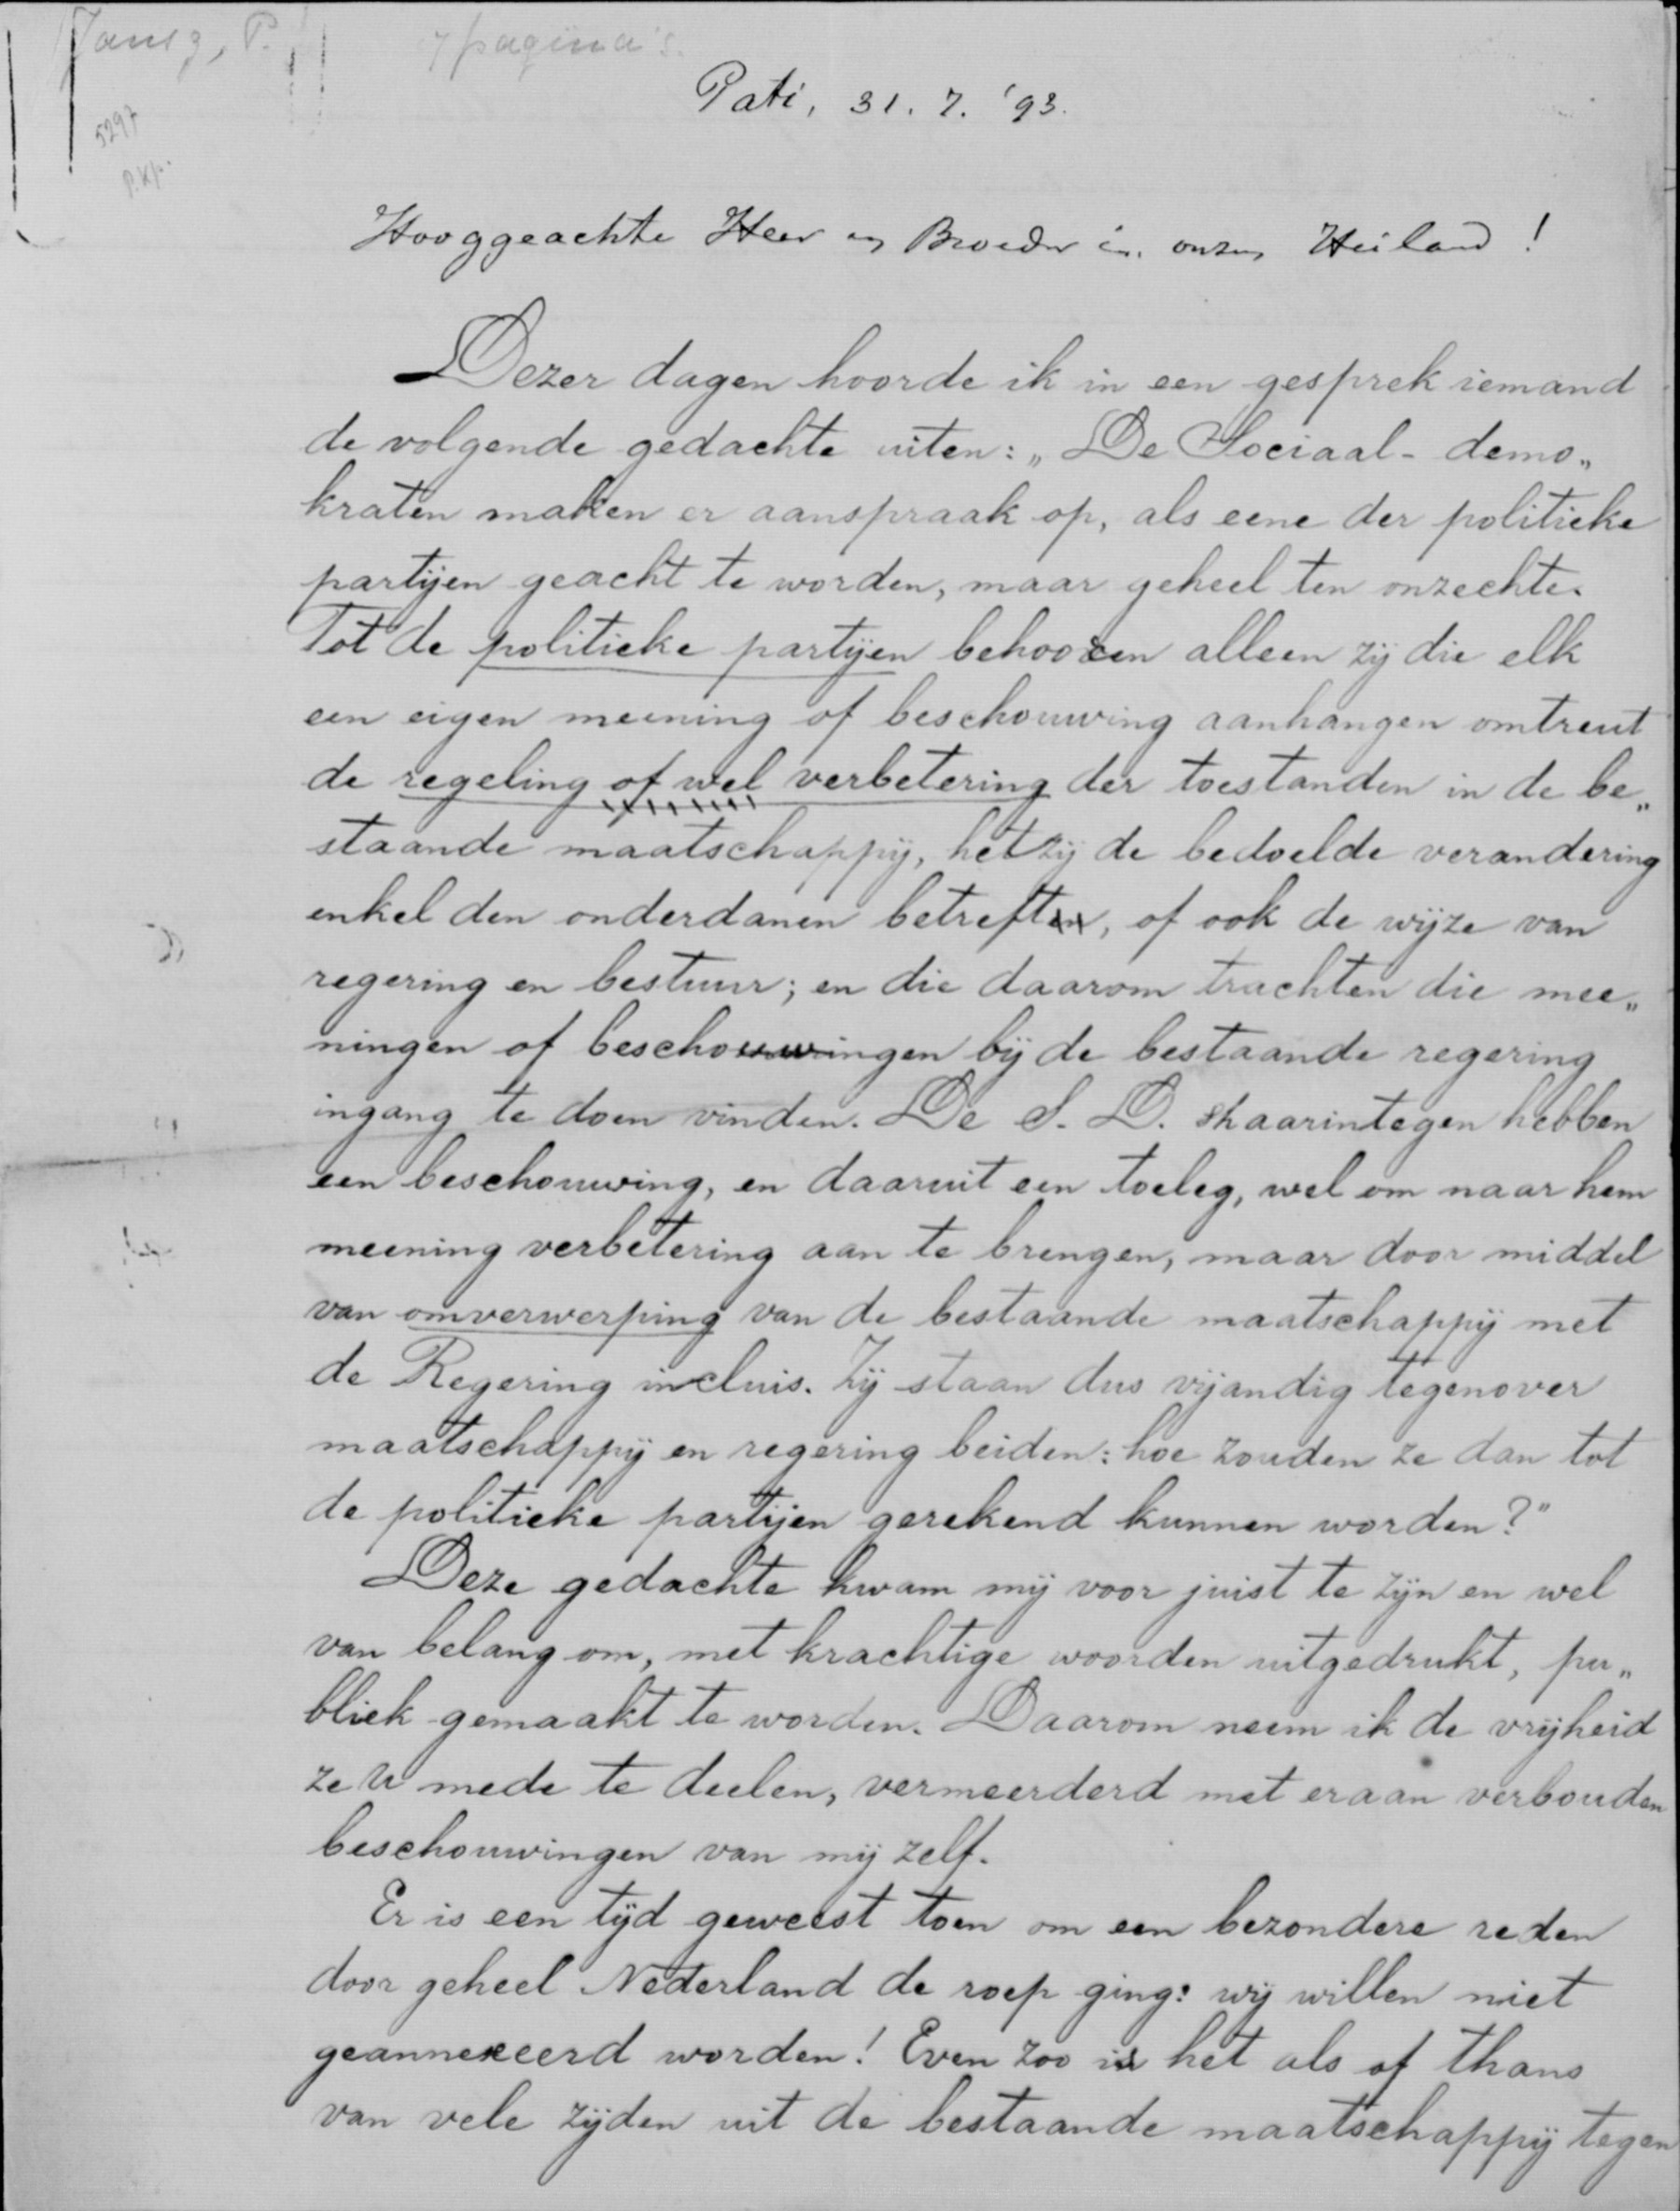 Jansz, P.
7 pagina's.
5297
P.Kp.
Pati, 31. 7. '93.
Hooggeachte Heer en Broeder in onzen Heiland!
Dezer dagen hoorde ik in een gesprek iemand
de volgende gedachte uiten: „De Sociaal-demo„
kraten maken er aanspraak op, als eene der politieke
partijen geacht te worden, maar geheel ten onrechte.
Tot de politieke partijen behooren alleen zij die elk
een eigen meening of beschouwing aanhangen omtrent
de regeling of wel verbetering der toestanden in de be„
staande maatschappij, hetzij de bedoelde verandering
enkel den onderdanen betreft, of ook de wijze van
regering en bestuur; en die daarom trachten die mee„
ningen of beschouwingen bij de bestaande regering
ingang te doen vinden. De S. D. daarintegen hebben
een beschouwing, en daaruit een toeleg, wel om naar hem
meening verbetering aan te brengen, maar door middel
van omverwerping van de bestaande maatschappij met
de Regering incluis. Zij staan dus vijandig tegenover
maatschappij en regering beiden: hoe zouden ze dan tot
de politieke partijen gerekend kunnen worden?"
Deze gedachte kwam mij voor juist te zijn en wel
van belang om, met krachtige woorden uitgedrukt, pu„
bliek gemaakt te worden. Daarom neem ik de vrijheid
ze U mede te deelen, vermeerderd met eraan verbonden
beschouwingen van mij zelf.
Er is een tijd geweest toen om een bezondere reden
door geheel Nederland de roep ging: wij willen niet
geannexeerd worden! Even zoo is het als of thans
van vele zijden uit de bestaande maatschappij tegen